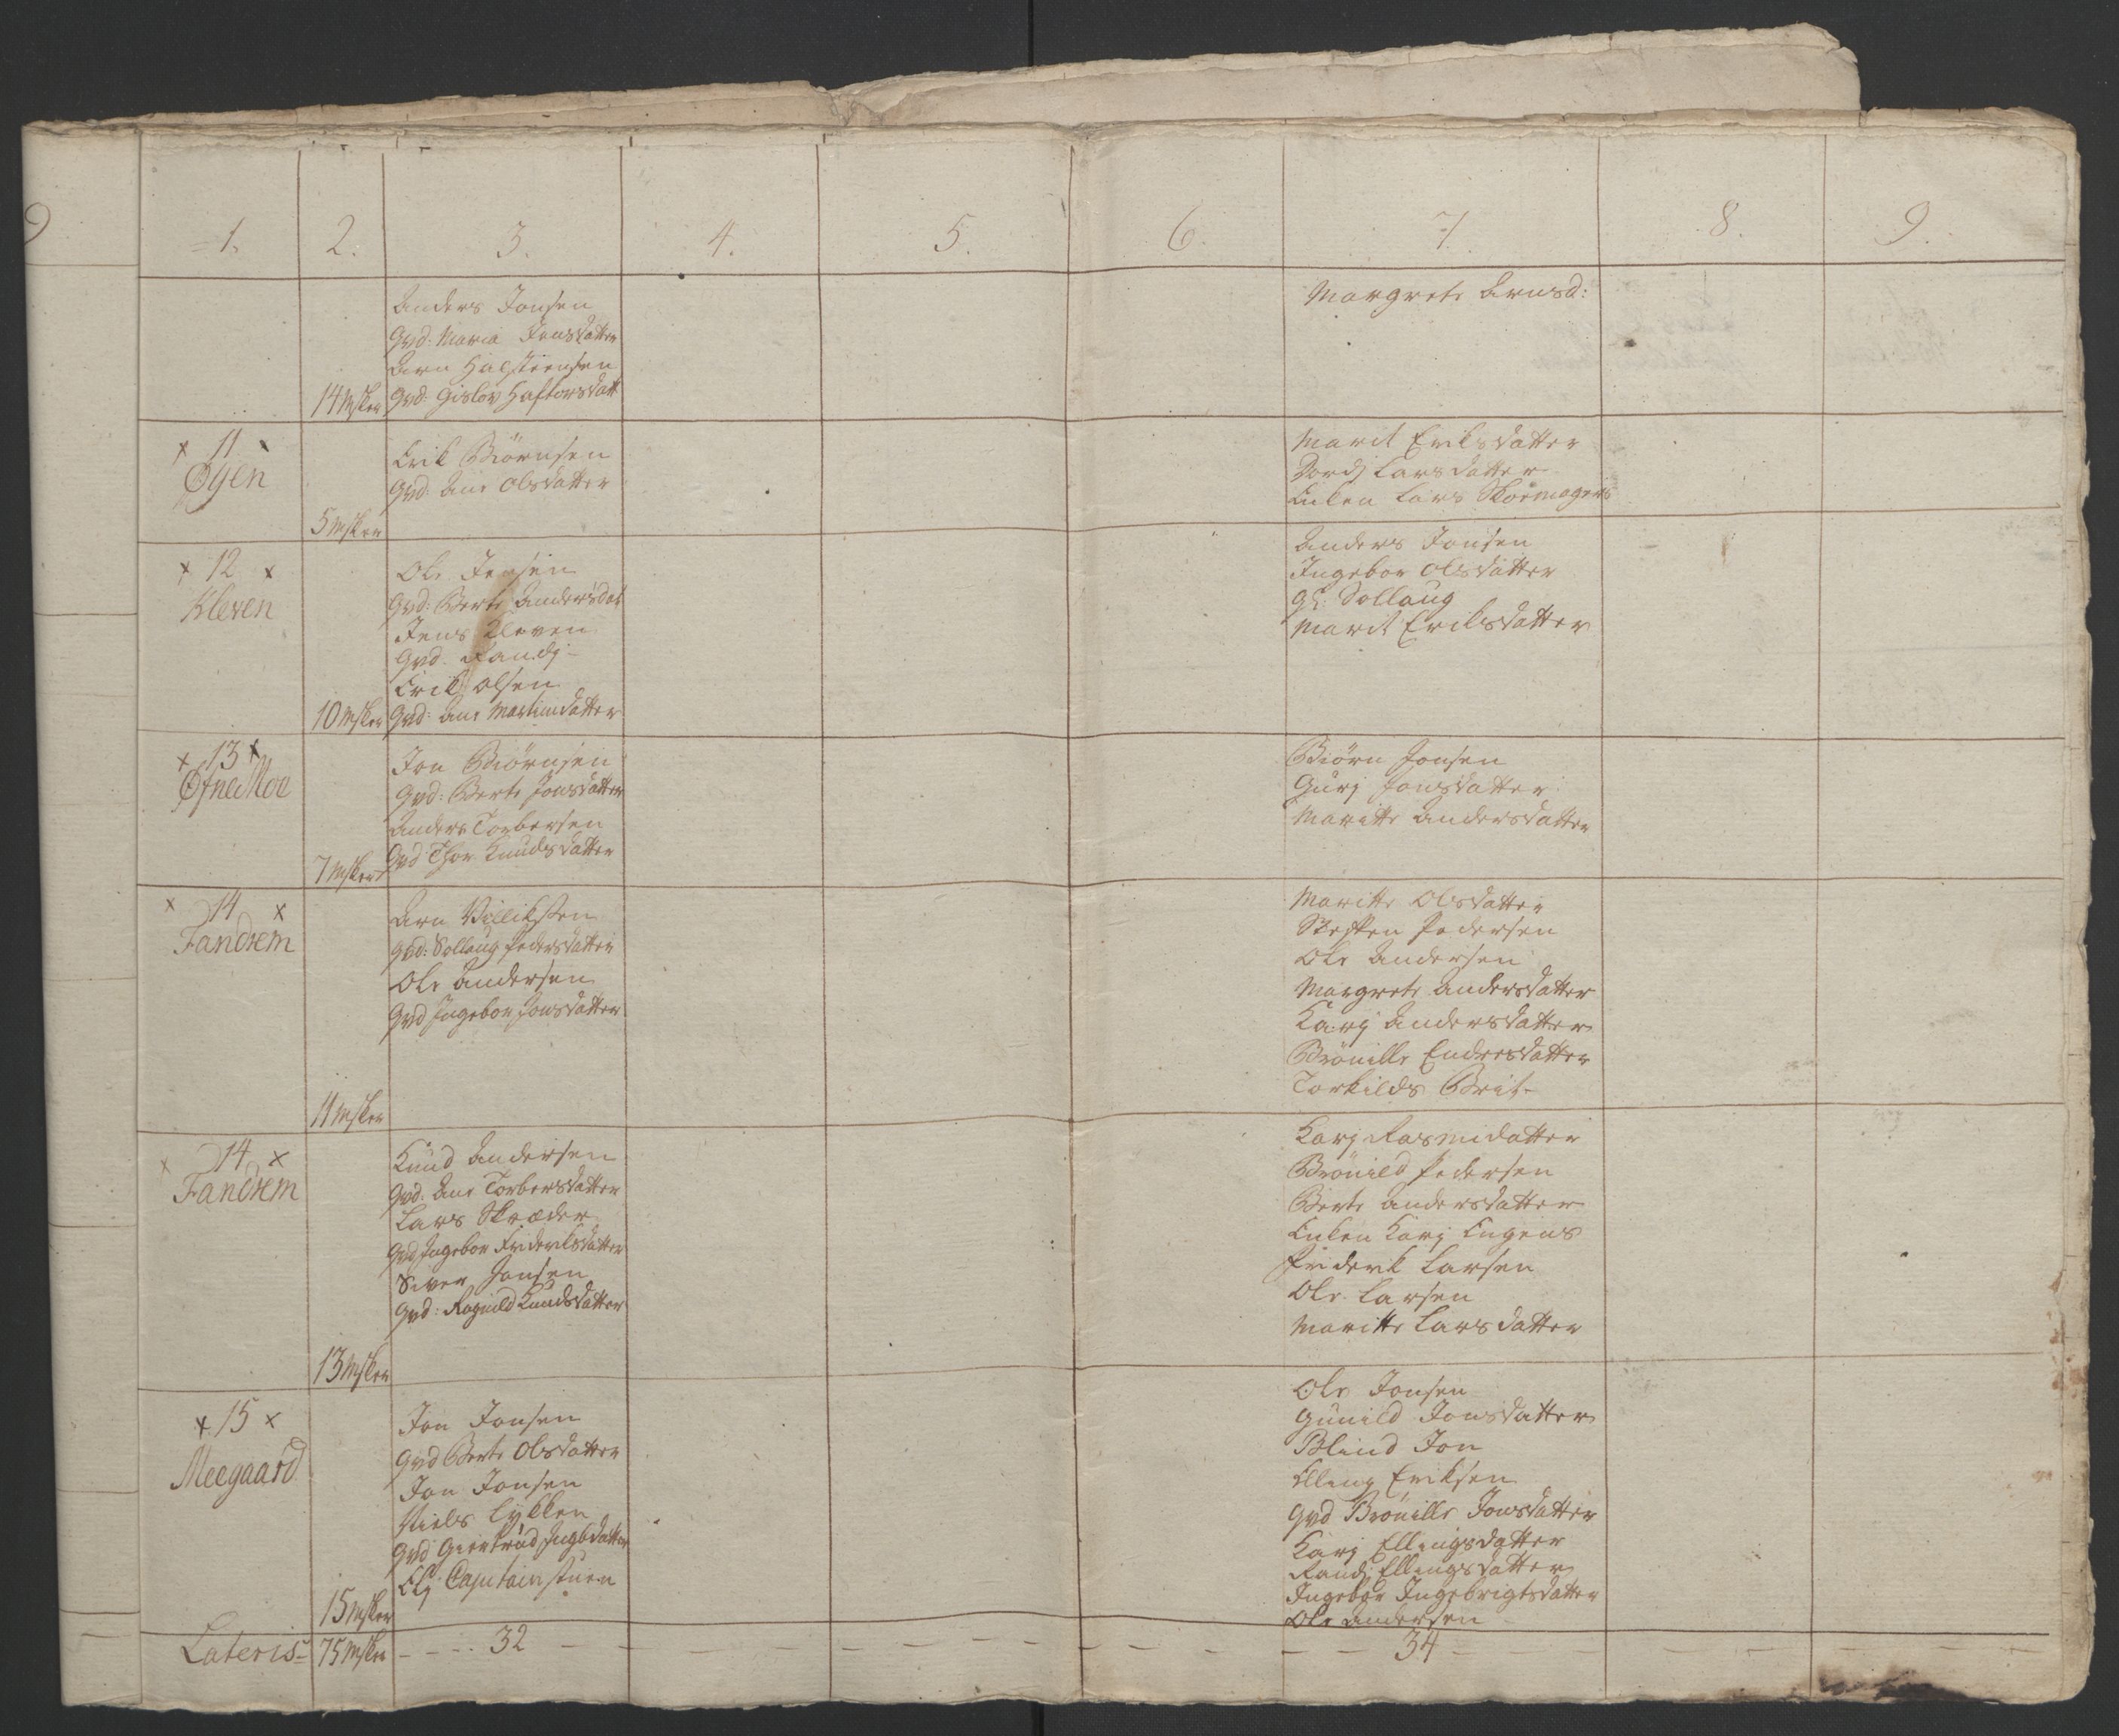 9
1. 2. 3. 4. 5. 6. 7. 8. 9.
Anders Jonsen
qvd: Maria Jensdatter
Arn Halsteensen
14 Msker qvd: Gislov Haftorsdatt
Margrete Arnsd:
x 11 x
Øyen
5 Msker
Erik Biörnsen
qvd: Ane Olsdatter
Marit Eriksdatter
Dordj Larsdatter
Enken Lars Skoemagers
x 12 x
Kleven
10 Msker
Ole Jensen
qvd: Berte Andersdat
Jens Kleven
qvd. Randj
Erik Olsen
qvd: Ane Martinsdatter
Anders Jonsen
Ingebor Olsdatter
gl: Sollaug
Marit Eriksdatter
x 13 x
Øfne Moe
7 Msker
Jon Biörnsen
qvd: Berte Jonsdatter
Anders Torbersen
qvd Thor Knudsdatter
Biörn Jonsen
Gurj Jonsdatter
Maritte Andersdatter
x 14 x
Fandrem
11 Msker
Arn Villiksen
qvd: Sollaug Pedersdatter
Ole Andersen
qvd Ingebor Jonsdatter
Maritte Olsdatter
Steffen Pedersen
Ole Andersen
Margrete Andersdatter
Karj Andersdatter
Brönille Endresdatter
Torkilds Brit
x 14 x
Fandrem
13 Msker
Knud Andersen
qvd. Ane Torbersdatter
Lars Skræder
qvd Ingebor Frideriksdatter
Siver Jonsen
qvd: Ragnild Knudsdatter
Karj Rasmidatter
Brönild Pedersen
Berte Andersdatter
Enken Karj Engens
Friderik Larsen
Ole Larsen
Maritte Larsdatter
x 15 x
Meegaard
15 Msker
Jon Jonsen
qvd Berte Olsdatter
Jon Jonsen
Niels Lykken
qvd Giertrud Ingebdatter
Elj Capitainstuen
Ole Jonsen
Gunild Jonsdatter
Blind Jon
Elling Eriksen
qvd Brönille Jonsdatter
Karj Ellingsdatter
Randj Ellingsdatter
Ingebor Ingebrigtsdatter
Ole Andersen
Lateris 75 Msker 32 34